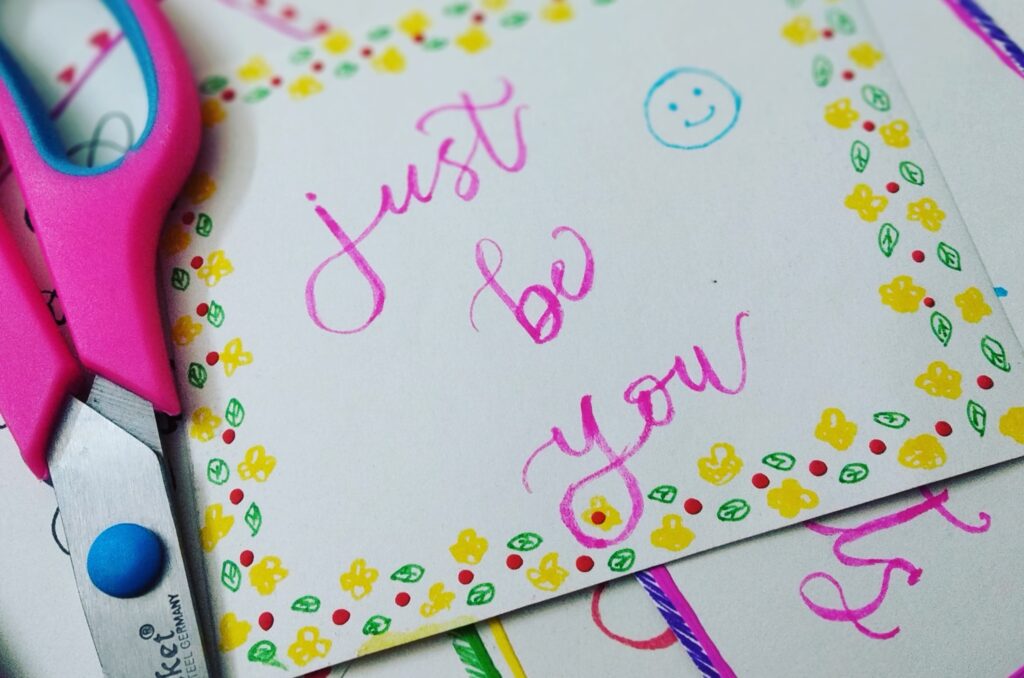 just
be
you
ket®
TEEL GERMANY